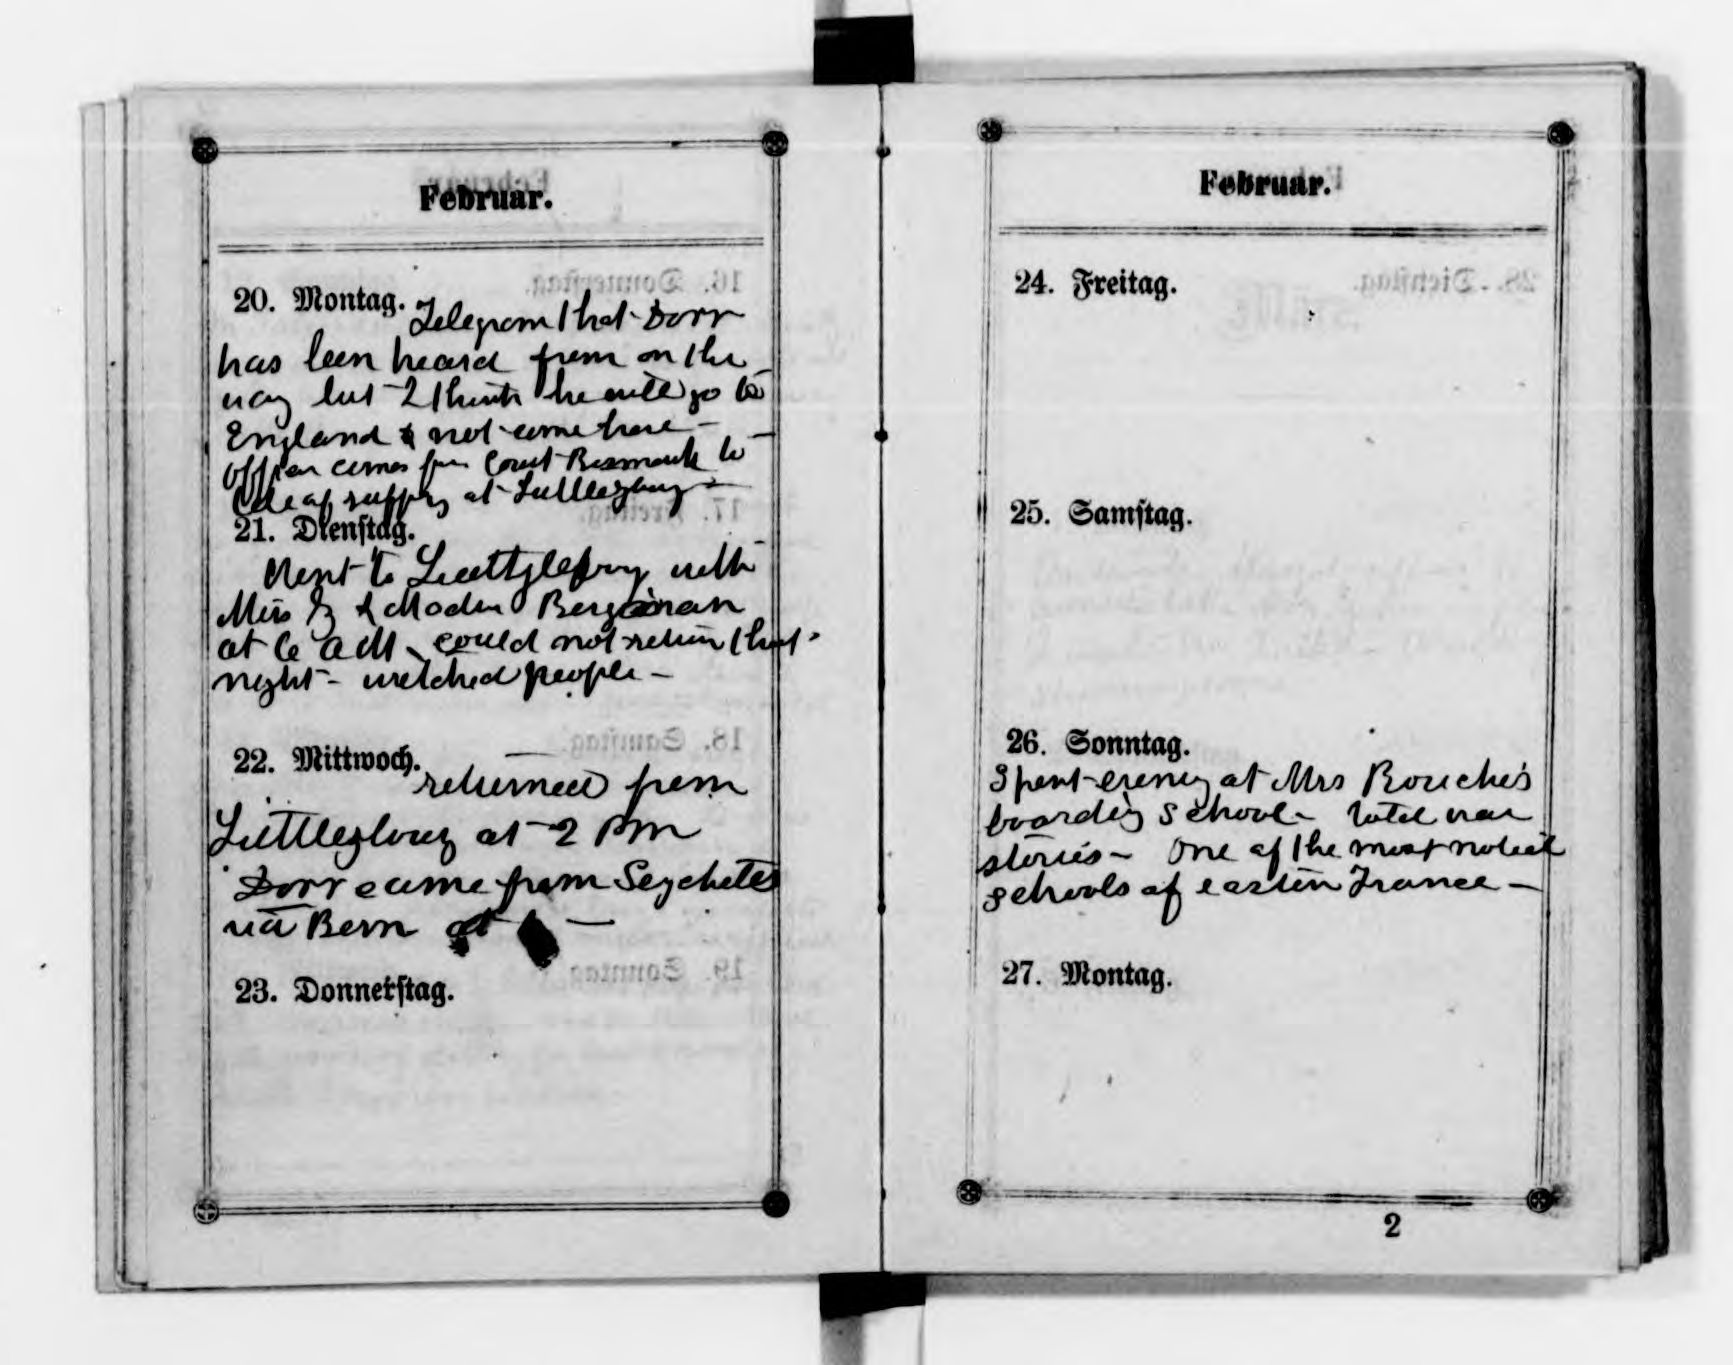 Februar.
20. Montag. Telegram that Dorr
has been heard from on the
way but I think he will go to
England & not come here -
Officer comes from Count Bismark to
at Luttleyburg -
21. Dienstag.
Went to Luettzleburg with
Miss Z & Madm Bergman
at 6 AM, could not return that
night - wretched people -
22. Mittwoch.
returned from
Luttleyburg at 2 PM
Dorr came from
via Bern at -
23. Donnerstag.
Februar.
24. Freitag.
25. Samstag.
26. Sonntag.
Spent evening at Mrs Bouche's
boarding school - told war
stories - One of the most noted
schools of eastern France -
27. Montag.
2